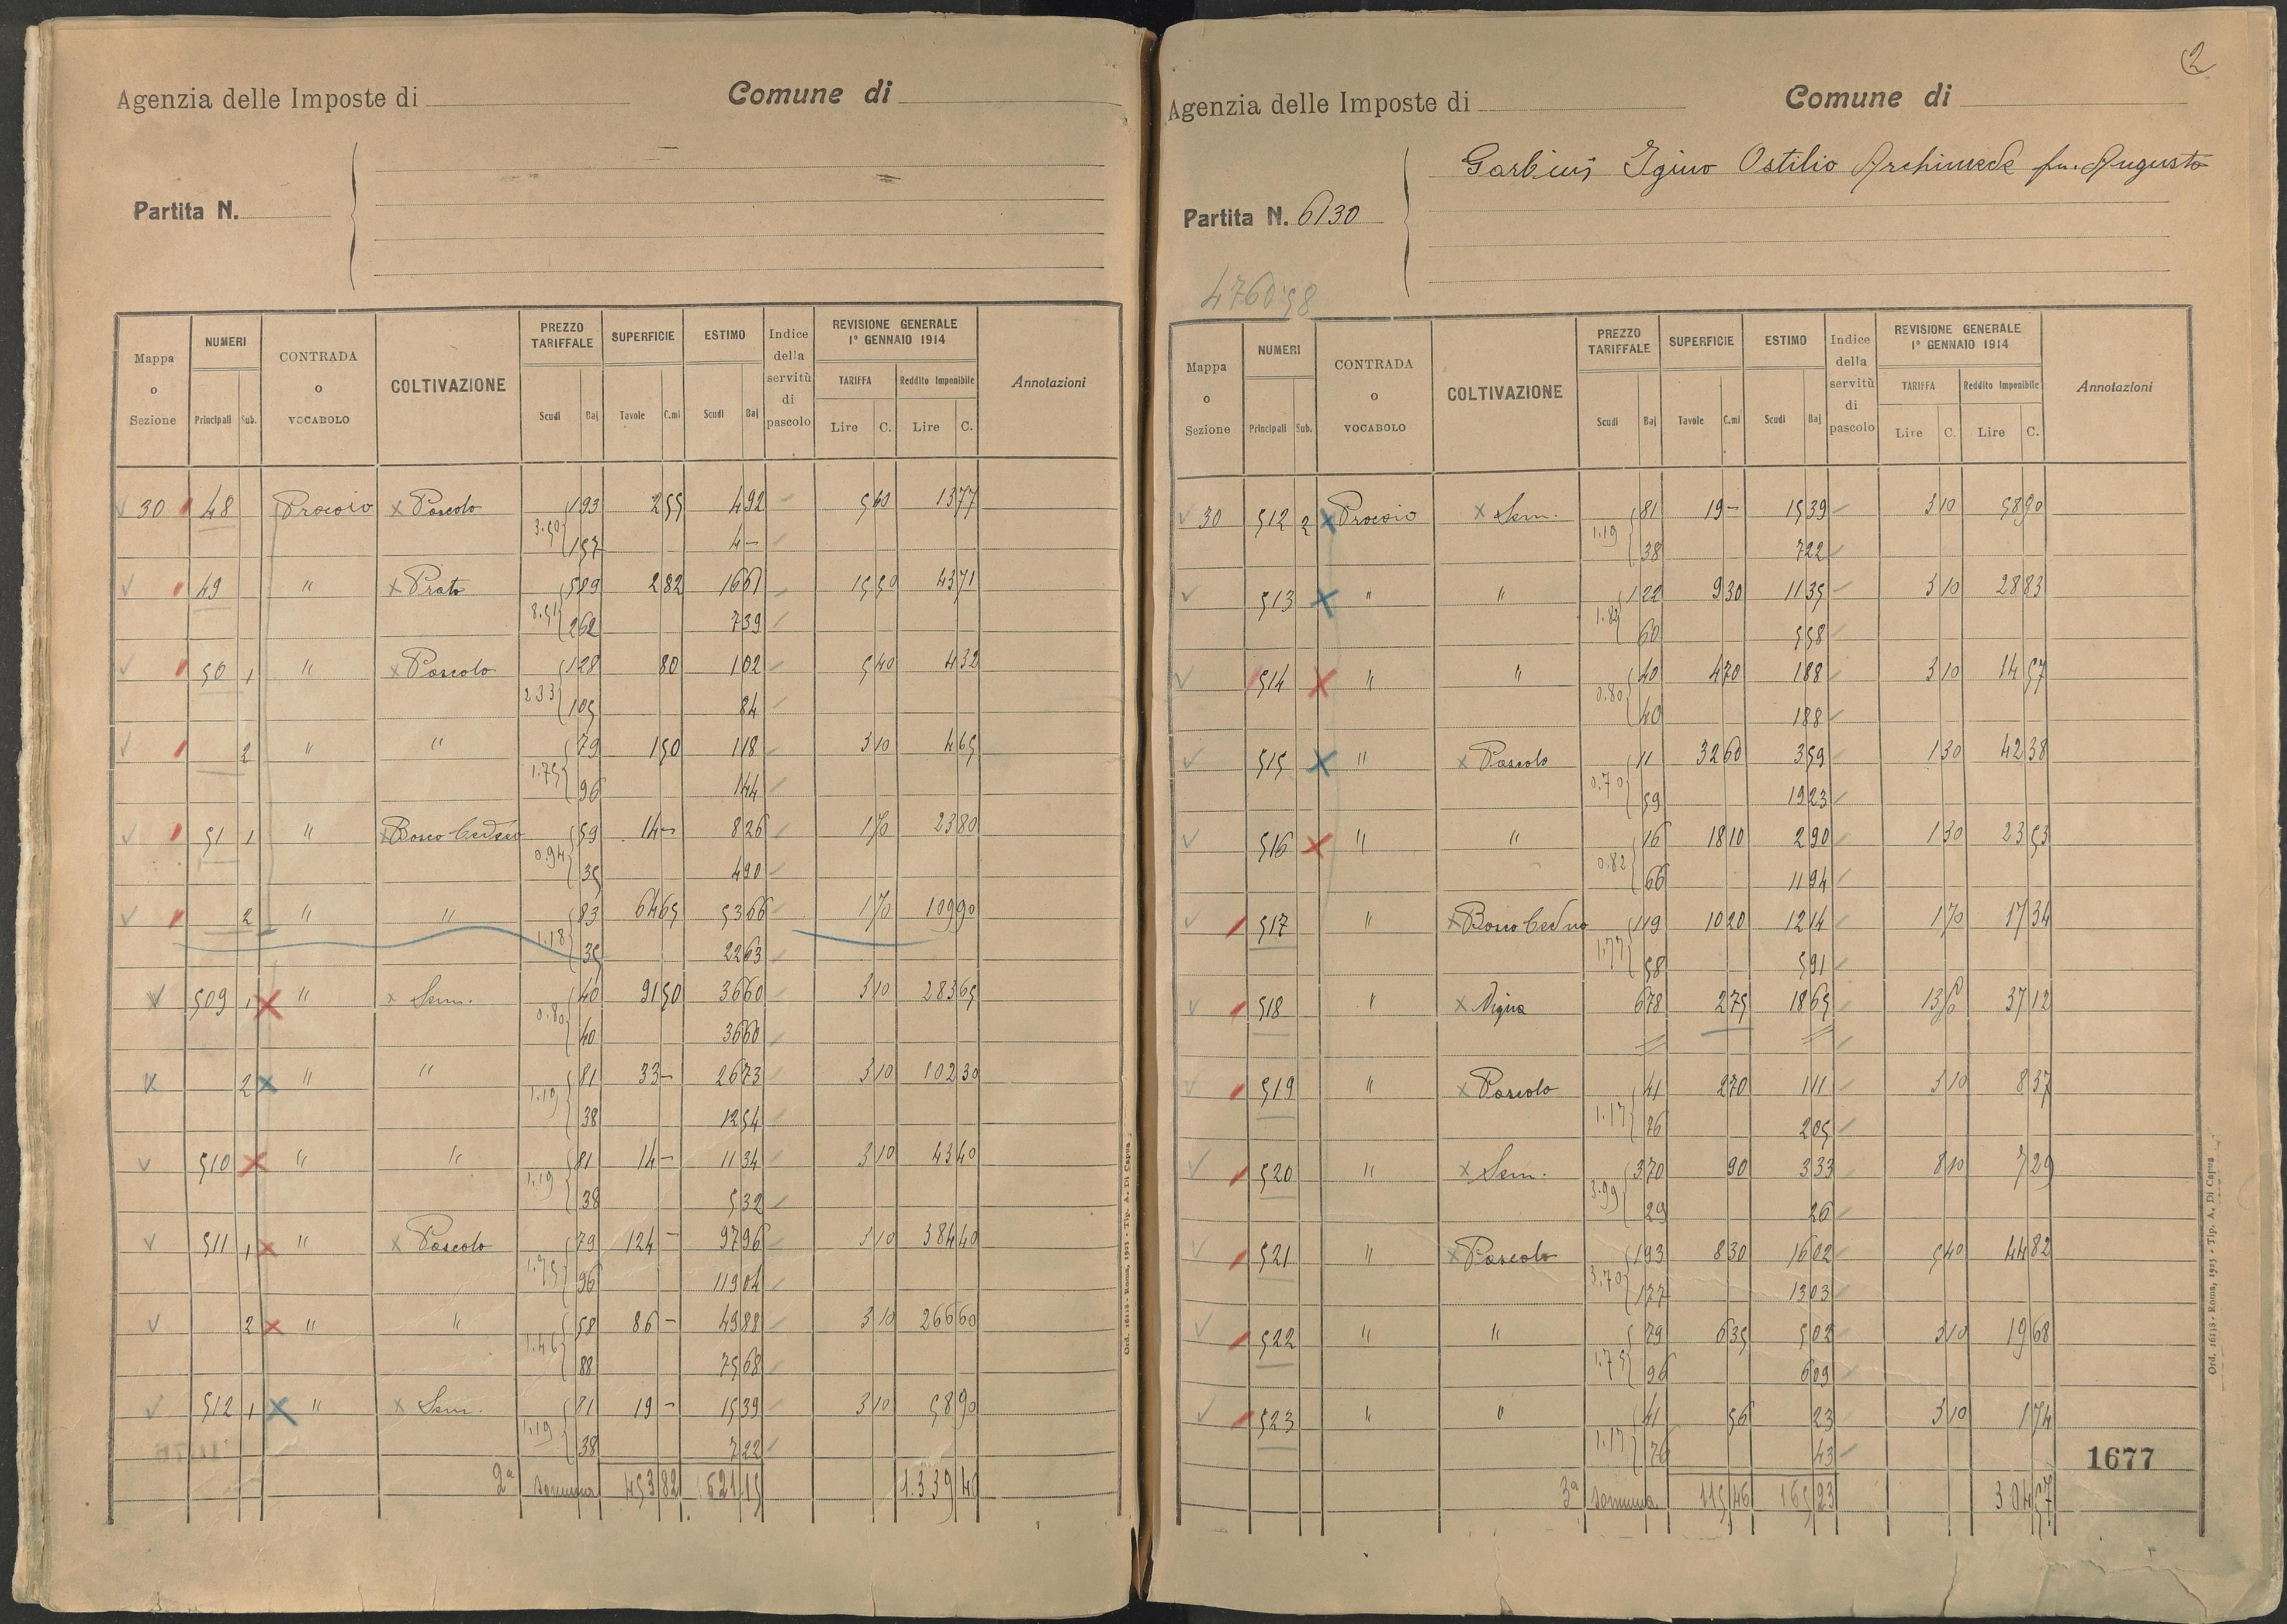 Agenzia delle Imposte di
Comune di
Partita N.
Mappa o Sezione
NUMERI
Principali Sub.
CONTRADA o VOCABOLO
COLTIVAZIONE
PREZZO TARIFFALE
Scudi Baj
SUPERFICIE
Tavole C.mi
ESTIMO
Scudi Baj
Indice della servitù di pascolo
REVISIONE GENERALE 1° GENNAIO 1914
TARIFFA Reddito Imponibile
Lire C. Lire C.
Annotazioni
30 48 Procoio Pascolo 1 93 2 55 4 92 5 60 13 77
3.50 1 57 4 –
49 " Prato 5 89 2 82 16 61 15 50 43 71
8.51 2 62 7 39
50 1 " Pascolo 1 28 80 1 02 5 40 4 32
2.33 1 05 84
2 " " 79 1 50 1 18 3 10 4 65
1.75 96 1 44
51 1 " Bosco Ceduo 59 14 – 8 26 1 70 23 80
0.94 35 4 90
2 " " 83 64 65 53 66 1 70 109 90
1.18 35 22 63
509 1 " Sem. 40 91 50 36 60 3 10 283 65
0.80 40 36 60
2 " " 81 33 – 26 73 3 10 102 30
1.19 38 12 54
510 " " 81 14 – 11 34 3 10 43 40
1.19 38 5 32
511 1 " Pascolo 79 124 – 97 96 3 10 384 40
1.75 96 119 04
2 " " 58 86 – 49 88 3 10 266 60
1.46 88 75 68
512 1 " Sem. 81 19 – 15 39 3 10 58 90
1.19 38 7 22
2ª somma 453 82 621 15 1.339 40
Ord. 16118 - Roma, 1923 - Tip. A. Di Capua
2
Agenzia delle Imposte di
Comune di
Igino Ostilio Archimede fu Augusto
Partita N. 6130
4760.58
Mappa o Sezione
NUMERI
Principali Sub.
CONTRADA o VOCABOLO
COLTIVAZIONE
PREZZO TARIFFALE
Scudi Baj
SUPERFICIE
Tavole C.mi
ESTIMO
Scudi Baj
Indice della servitù di pascolo
REVISIONE GENERALE 1° GENNAIO 1914
TARIFFA Reddito Imponibile
Lire C. Lire C.
Annotazioni
30 512 2 Procoio Sem. 81 19 – 15 39 3 10 58 90
1.19 38 7 22
513 " " 1 22 9 30 11 35 3 10 28 83
1.82 60 5 58
514 " " 40 4 70 1 88 3 10 14 57
0.80 40 1 88
515 " Pascolo 11 32 60 3 59 1 30 42 38
0.70 59 19 23
516 " " 16 18 10 2 90 1 30 23 53
0.82 66 11 94
517 " Bosco Ceduo 1 19 10 20 12 14 1 70 17 34
1.77 58 5 91
518 " Vigna 6 78 2 75 18 65 13 50 37 12
519 " Pascolo 41 2 70 1 11 3 10 8 37
1.17 76 2 05
520 " Sem. 3 70 90 3 33 8 10 7 29
3.99 29 26
521 " Pascolo 1 93 8 30 16 02 5 40 44 82
3.70 1 77 13 03
522 " " 79 6 35 5 02 3 10 19 68
1.75 96 6 09
523 " " 41 56 23 3 10 1 74
1.17 76 43
1677
3ª somma 115 46 165 23 304 57
Ord. 16118 - Roma, 1923 - Tip. A. Di Capua